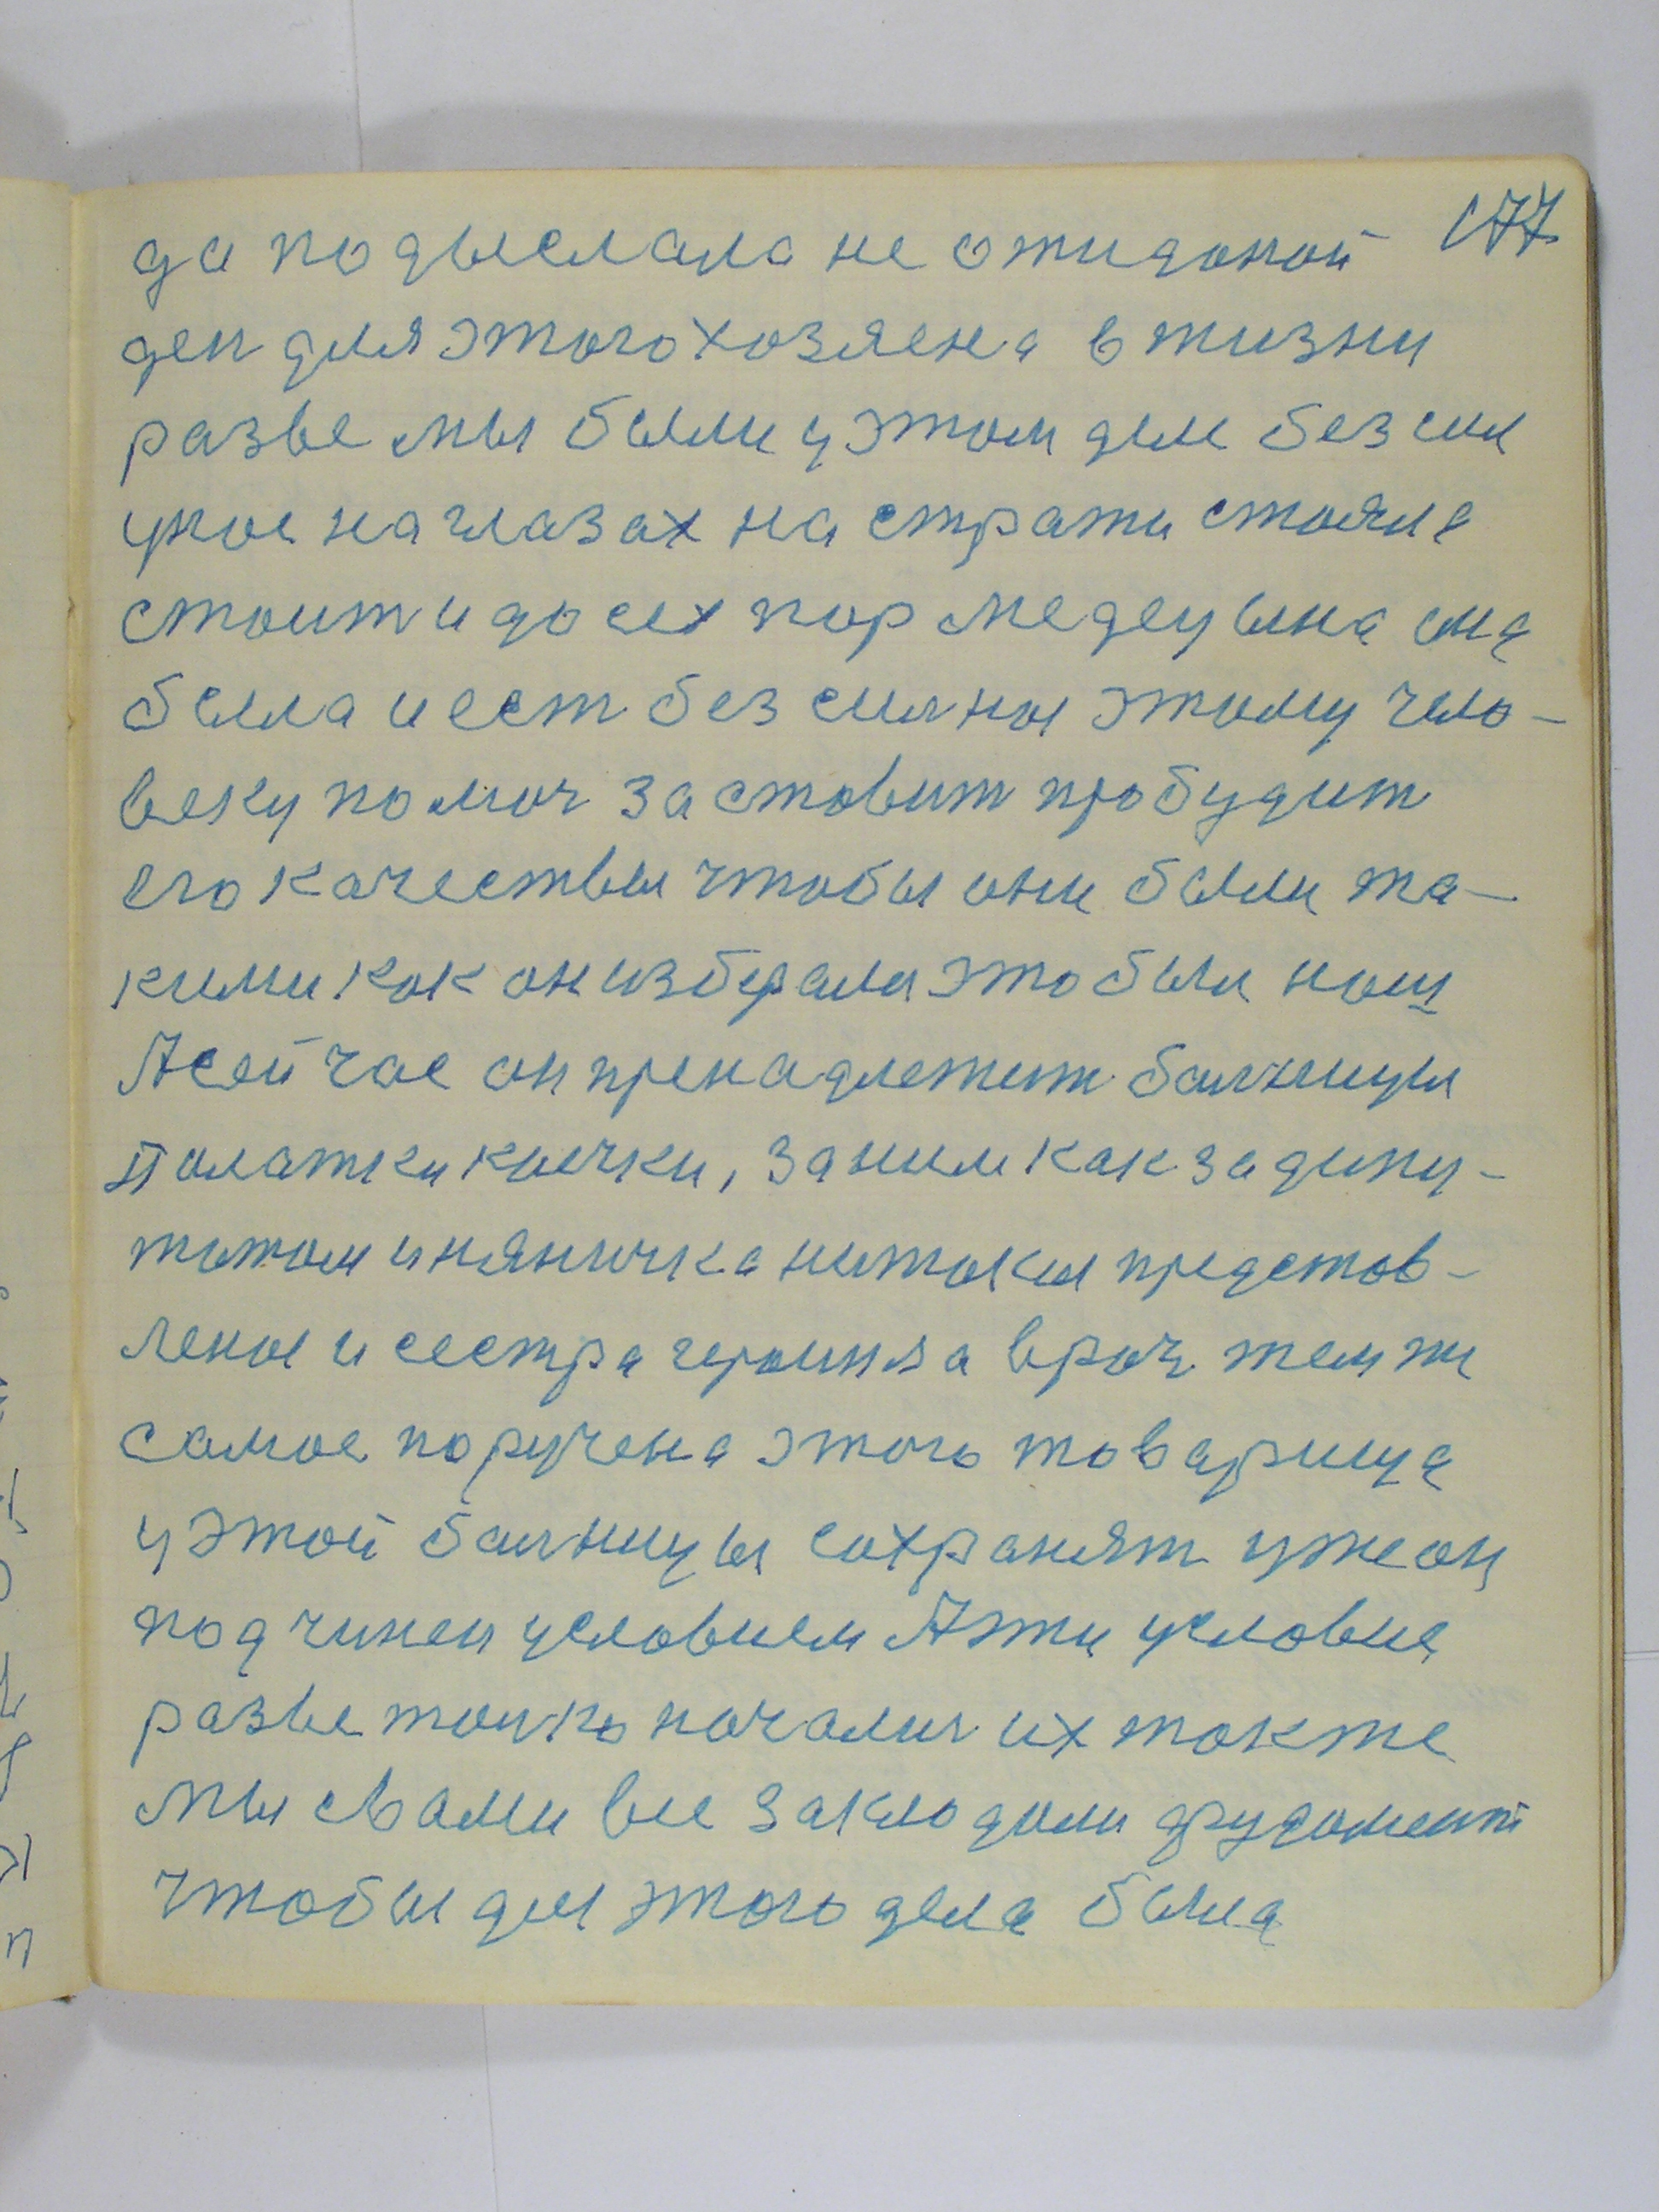 177
да подыслала не ожиданой
ден для этого хозяена в жизни
разве мы были у этом деле без сил
укол на глазах на стражи стояла
стоит и до сех пор медецына она
была и ест без силны этому чело-
веку помоч заставит пробудит
его качествы чтобы они были та-
кими как он избирали это были наш
А сейчас он пренадлежит балницы
палатки коечки, за ним как за депу-
татом и няничка нитокы представ-
лены и сестра героиня а врач тем же
самое поручена этого товарища
у этой балницы сохранят уже он
подчинен условием А эти условие
разве толко начались их также
мы с вами все закладали фудамент
чтобы для этого дела была